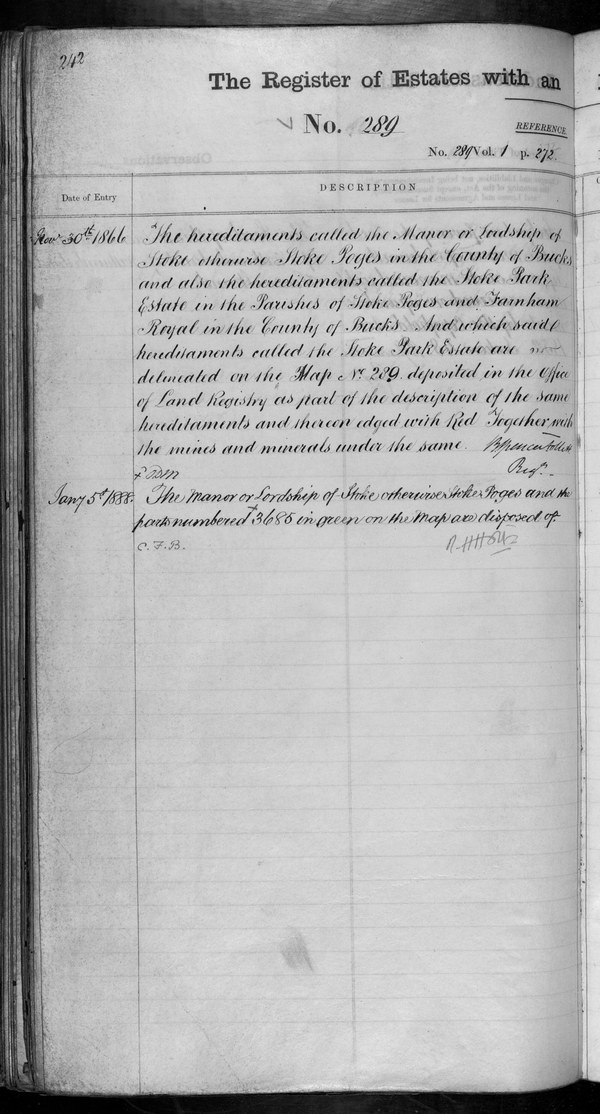 242
The Register of Estates with an
No. 289
REFERENCE.
No. 289 Vol. 1 p. 272.
Date of Entry
DESCRIPTION
Novr. 30th 1866
The hereditaments called the Manor or Lordship of
Stoke otherwise Stoke Poges in the County of Bucks
and also the hereditaments called the Stoke Park
Estate in the Parishes of Stoke Poges and Farnham
Royal in the County of Bucks. And which said
hereditaments called the Stoke Park Estate are
delineated on the Map No. 289 deposited in the Office
of Land Registry as part of the description of the same
hereditaments and thereon edged with Red Together with
the mines and minerals under the same.
Regr.
Jany 5th 1888.
The Manor or Lordship of Stoke otherwise Stoke Poges and the
parts numbered + 3685 in green on the Map are disposed of.
C.F.B.